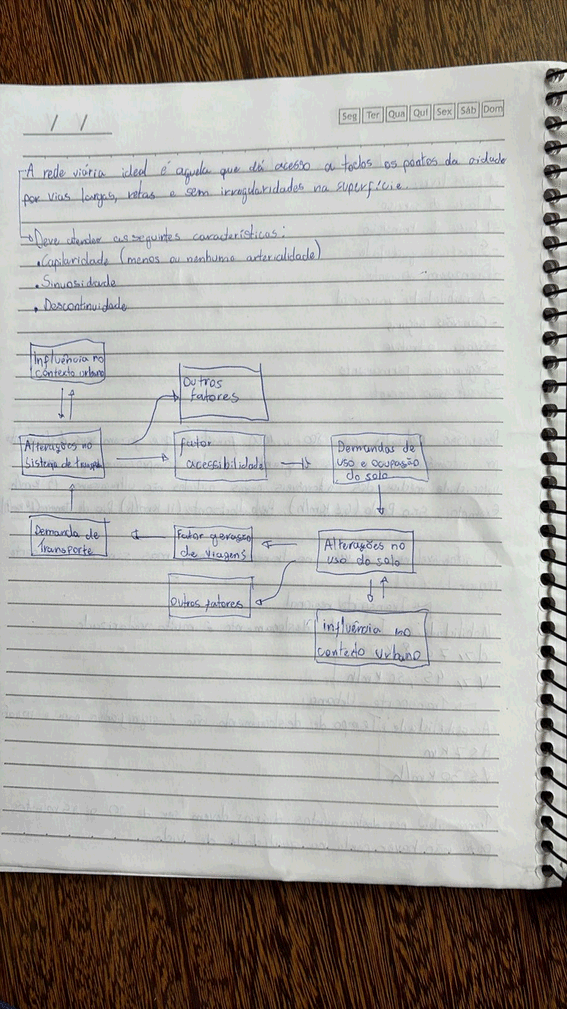 / /
Seg Ter Qua Qui Sex Sáb Dom
A rede viária ideal é aquela que dá acesso a todos os pontos da cidade
por vias largas, retas e sem irregularidades na superfície.
→ Deve atender as seguintes características:
• Capilaridade (menos ou nenhuma arterialidade)
• Sinuosidade
• Descontinuidade
Influência no
contexto urbano
Outros
fatores
Alterações no
sistema de transporte
Fator
acessibilidade
Demandas de
uso e ocupação
do solo
Demanda de
Transporte
Fator geração
de viagens
Alterações no
uso do solo
Outros fatores
influência no
contexto urbano